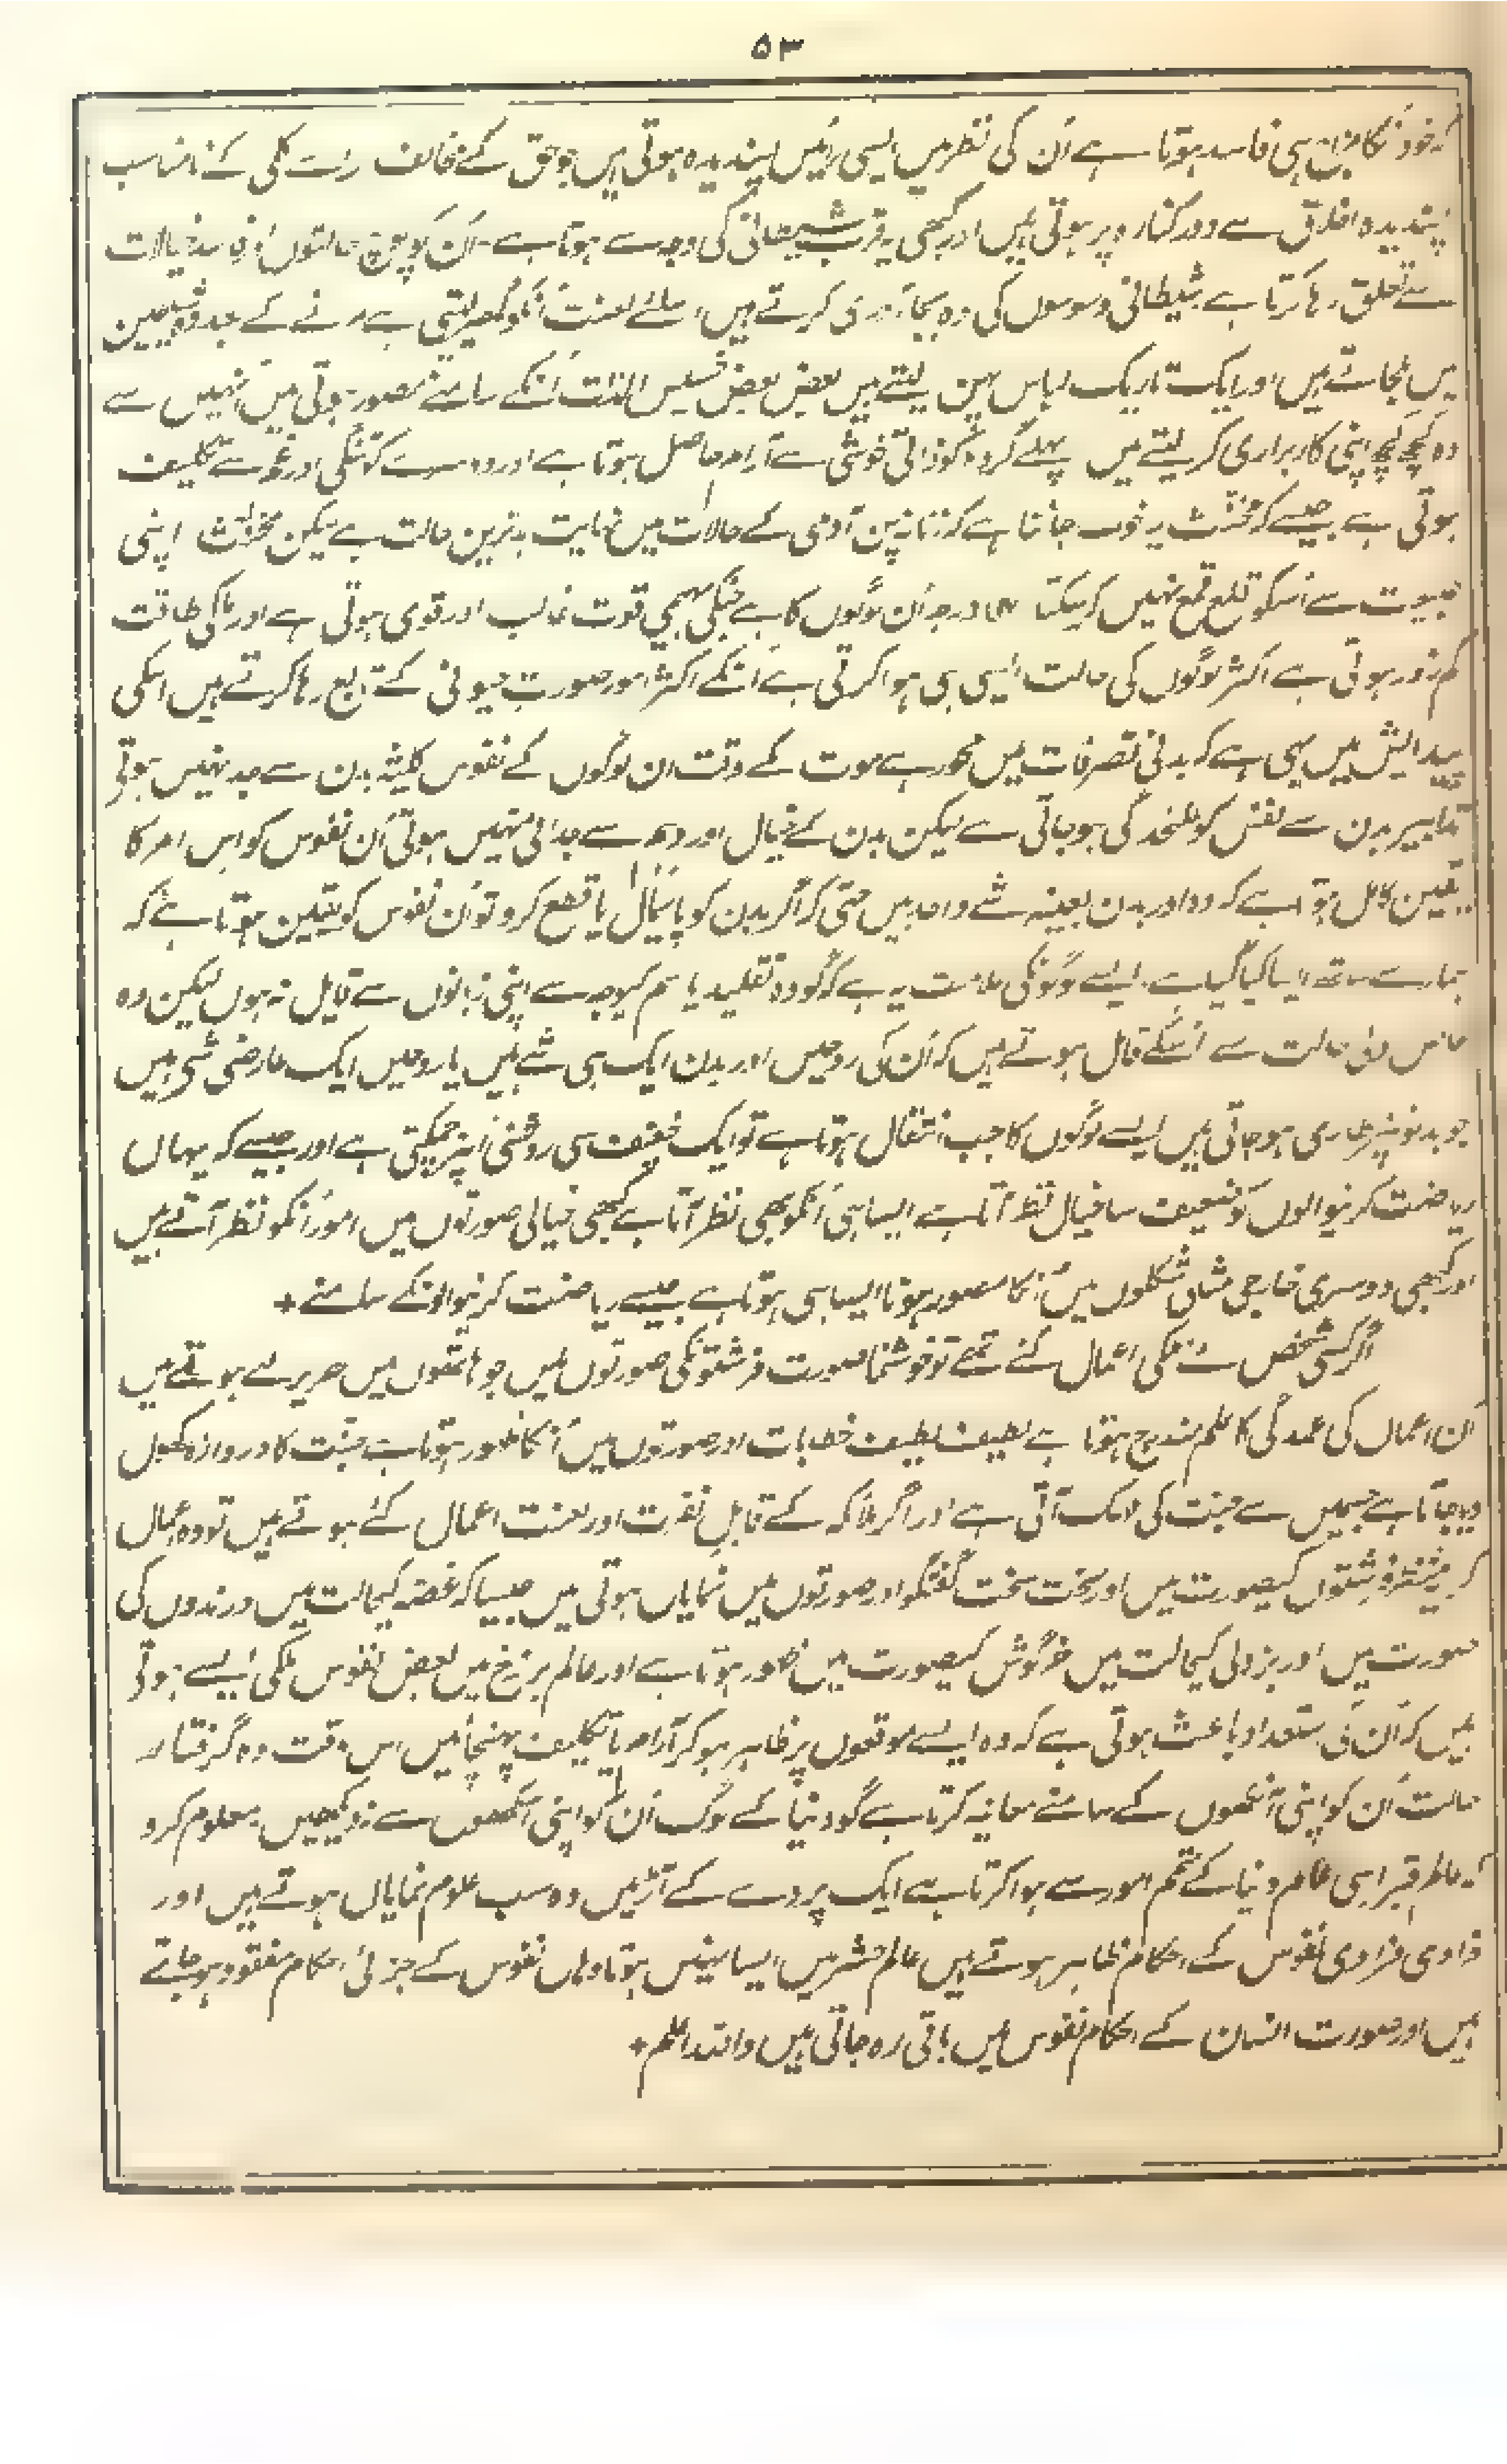 ۵۳
کہ خود اُنکا مزاج ہی فاسد ہوتا ہے اُن کی نظر میں ایسی رائیں پسندیدہ ہوتی ہیں جو حق کے مخالف رائے کلی کے نامناسب
پسندیدہ اخلاق سے دور کنارہ پر ہوتی ہیں اور کبھی یہ قرب شیطانی کی وجہ سے ہوتا ہے۔ اُن کو پوچ حالتوں اور فاسد خیالات
سے تعلق رہا کرتا ہے شیطانی وسوسوں کی وہ بجا آوری کرتے ہیں اسلئے لعنت اُنکو گھیر لیتی ہے مرنے کے بعد وہ شیاطین
میں ملجاتے ہیں اور ایک تاریک لباس پہن لیتے ہیں بعض بعض خسیس لذات اُنکے سامنے مصور ہوتی ہیں اُنہیں سے
وہ کچھ کچھ اپنی کاربراری کر لیتے ہیں پہلے گروہ کو ذاتی خوشی سے آرام حاصل ہوتا ہے اور دوسرے کو تنگی اور غم سے تکلیف
ہوتی ہے جیسے کہ مخنث یہ خوب جانتا ہے کہ زنانہ پن آدمی کے حالات میں نہایت بدترین حالت ہے لیکن مخنث اپنی
طبیعت سے اُسکو قلع قمع نہیں کر سکتا درجہ اُن لوگوں کا ہے جنکی بہیمی قوت غالب اور قوی ہوتی ہے اور ملکی طاقت
کم زور ہوتی ہے اکثر لوگوں کی حالت ایسی ہی ہوا کرتی ہے اُنکے اکثر امور صورت حیوانی کے تابع رہا کرتے ہیں اُسکی
پیدایش میں یہی ہے کہ بدنی تصرفات میں محو رہے موت کے وقت ان لوگوں کے نفوس کلیۃً بدن سے جدا نہیں ہوتے
تدابیر بدن سے نفس کو علٰحدگی ہو جاتی ہے لیکن بدن کے خیال اور وہم سے جدائی نہیں ہوتی اُن نفوس کو اس امر کا
یقین کامل ہوتا ہے کہ وہ اور بدن بعینہ شے واحد ہیں حتی کہ اگر بدن کو پائمال یا قطع کرو تو اُن نفوس کو یقین ہوتا ہے کہ
ہمارے ساتھ ایسا کیا گیا ہے۔ ایسے لوگونکی علامت یہ ہے کہ گو وہ تقلید یا رسم کیوجہ سے اپنی زبانوں سے قایل نہ ہوں لیکن وہ
خالص دلی حالت سے اُسکے قائل ہوتے ہیں کہ اُن کی روحیں اور بدن ایک ہی شے ہیں یا روحیں ایک عارضی شی ہیں
جو بدنونپر طاری ہو جاتی ہیں ایسے لوگوں کا جب انتقال ہوتا ہے تو ایک خفیف سی روشنی اُنپر چمکتی ہے اور جیسے کہ یہاں
ریاضت کرنیوالوں کو ضعیف سا خیال نظر آتا ہے ایسا ہی اُنکو بھی نظر آتا ہے کبھی خیالی صورتوں میں امور اُنکو نظر آتے ہیں
اور کبھی دوسری خارجی مثالی شکلوں میں اُنکا مصور ہونا ایسا ہی ہوتا ہے جیسے ریاضت کرنیوالونکے سامنے +
اگر کسی شخص نے ملکی اعمال کئے تھے تو خوشنما صورت فرشتونکی صورتوں میں جو ہاتھوں میں حریر لئے ہوتے ہیں
اُن اعمال کی عمدگی کا علم مندرج ہوتا ہے لطیف لطیف خطابات اور صورتوں میں اُنکا ظہور ہوتا ہے جنت کا دروازہ کھول
دیا جاتا ہے جسمیں سے جنت کی مہک آتی ہے اور اگر ملائکہ کے قابل نفرت اور لعنت اعمال کئے ہوتے ہیں تو وہ اعمال
کریہ منظر فرشتوں کیصورت میں اور سخت سخت گفتگو اور صورتوں میں نمایاں ہوتی ہیں جیسا کہ غصہ کیحالت میں درندوں کی
صورت میں اور بزدلی کیحالت میں خرگوش کیصورت میں ظہور ہوتا ہے اور عالم برزخ میں بعض نفوس ملکی ایسے ہوتے
ہیں کہ اُن کی استعداد باعث ہوتی ہے کہ وہ ایسے موقعوں پر ظاہر ہو کر آرام یا تکلیف پہنچائیں اس وقت وہ گرفتار
حالت اُن کو اپنی آنکھوں کے سامنے معاینہ کرتا ہے گو دنیا کے لوگ اُن کو اپنی آنکھوں سے نہ دیکھیں۔ معلوم کرو
کہ عالم قبر اسی عالم دنیا کے تتمہ امور سے ہوا کرتا ہے ایک پردے کے آڑ میں وہ سب علوم نمایاں ہوتے ہیں اور
فرادی فرادی نفوس کے احکام ظاہر ہوتے ہیں عالم حشر میں ایسا نہیں ہوتا وہاں نفوس کے جزئی احکام مفقود ہو جاتے
ہیں اور صورت انسان کے احکام نفوس میں باقی رہ جاتی ہیں واللہ اعلم +